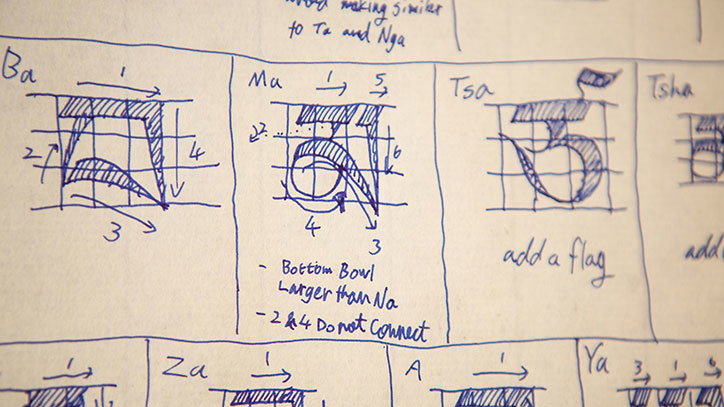 making similar
to Ta and Nga
Ba
1
2
4
3
བ
Ma
1 5
2
6
4
3
མ
- Bottom Bowl
Larger than Na
- 2 & 4 Do not Connect
Tsa
ཙ
add a flag
Tsha
add
1
Za 1
A 1
Ya 3 1